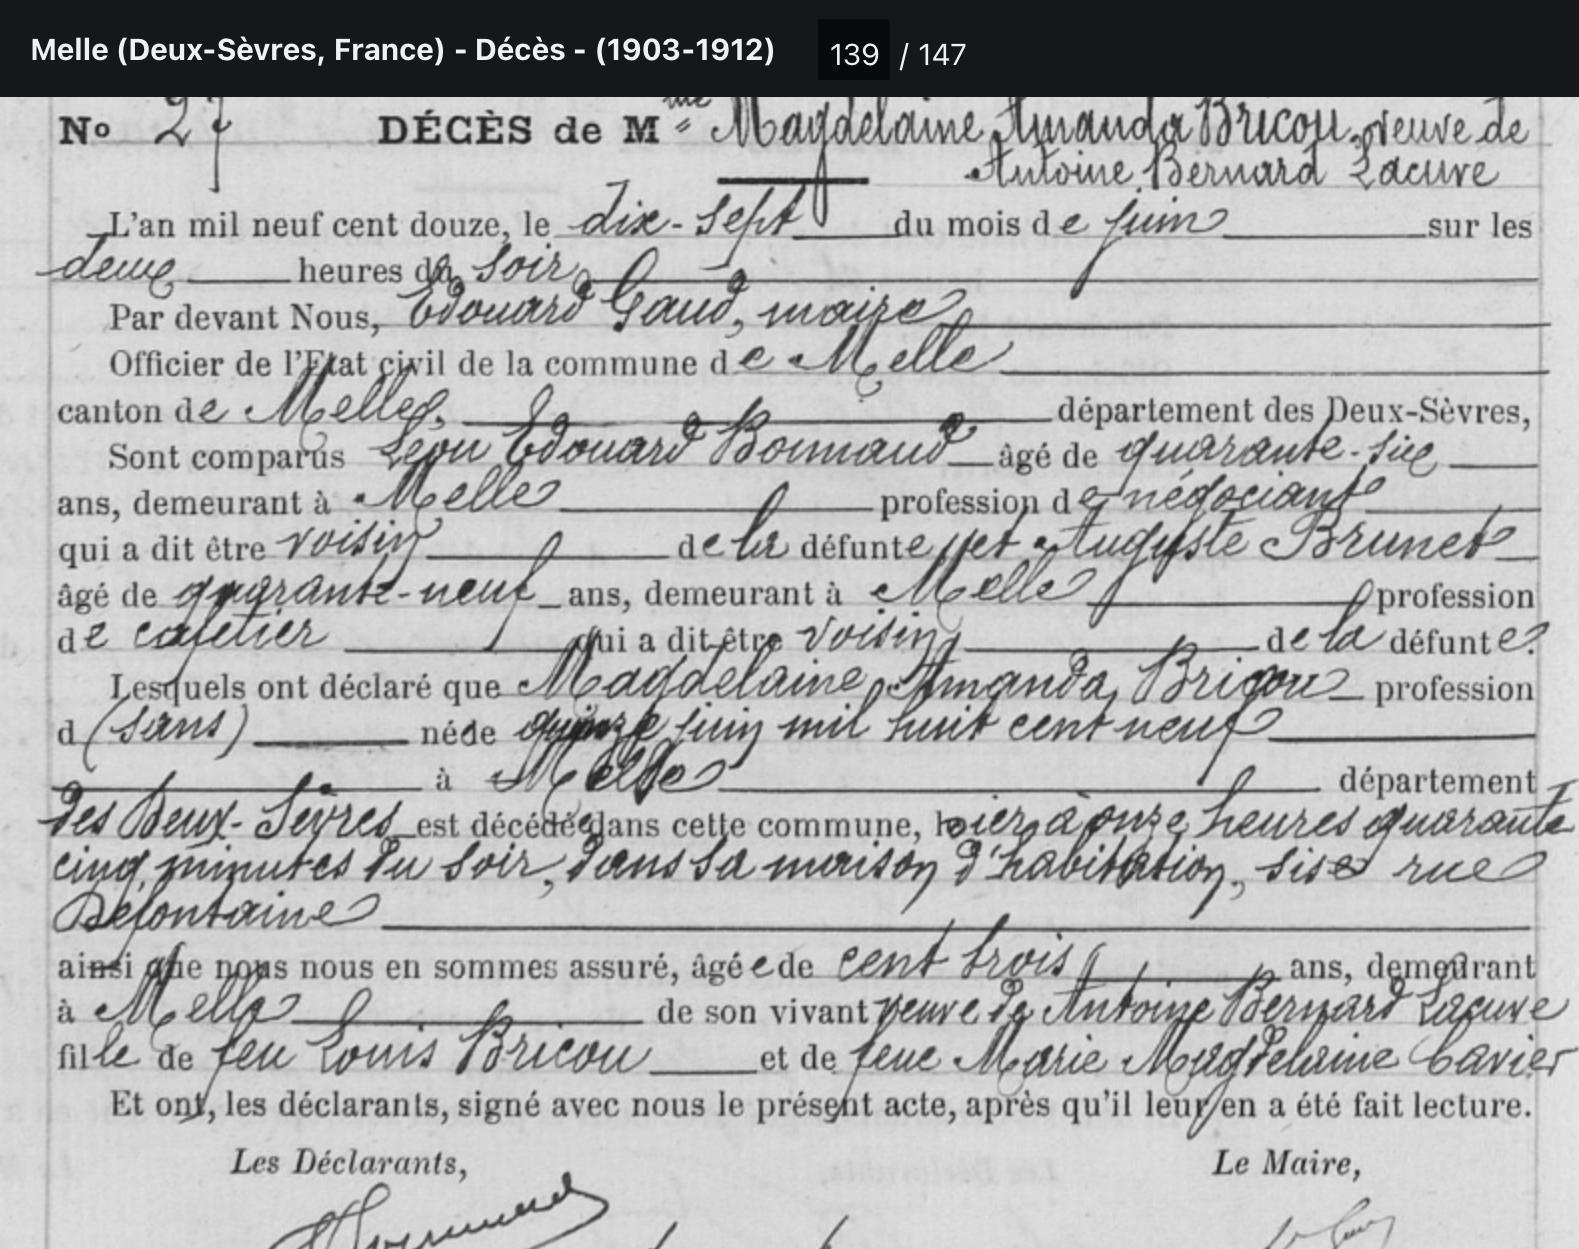 Melle (Deux-Sèvres, France) - Décès - (1903-1912) 139 / 147
No 27 DÉCÈS de Mme Magdelaine Amanda Bricou, veuve de
Antoine Bernard Lacuve
L'an mil neuf cent douze, le dix-sept du mois de juin sur les
deux heures du soir
Par devant Nous, Edouard Gaud, maire
Officier de l'Etat civil de la commune de Melle
canton de Melle, département des Deux-Sèvres,
Sont comparus Léon Edouard Bonnaud âgé de quarante-six
ans, demeurant à Melle profession de négociant
qui a dit être voisin de la défunte, et Auguste Brunet
âgé de quarante-neuf ans, demeurant à Melle profession
de cafetier qui a dit être voisin de la défunte.
Lesquels ont déclaré que Magdelaine Amanda Bricou profession
d (sans) née le quinze juin mil huit cent neuf
à Melle département
des Deux-Sèvres est décédée dans cette commune, hier à onze heures quarante
cinq minutes du soir, dans sa maison d'habitation, sise rue
Defontaine
ainsi que nous nous en sommes assuré, âgée de cent trois ans, demeurant
à Melle de son vivant veuve de Antoine Bernard Lacuve
fille de feu Louis Bricou et de feue Marie Magdelaine Cavier
Et ont, les déclarants, signé avec nous le présent acte, après qu'il leur en a été fait lecture.
Les Déclarants, Le Maire,